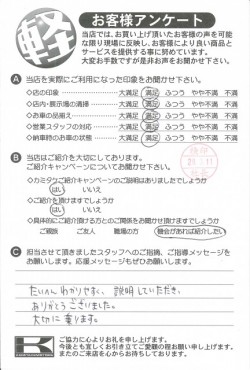 軽
お客様アンケート
当店では、お買い上げ頂いたお客様の声を可能
な限り現場に反映し、お客様により良い商品と
サービスを提供する事に努めています。
大変お手数ですが是非お声をお聞かせ下さい。
A 当店を実際にご利用になった印象をお聞かせ下さい。
◇店の印象 大満足 満足 ふつう やや不満 不満
◇店内・展示場の清掃 大満足 満足 ふつう やや不満 不満
◇お車の品揃え 大満足 満足 ふつう やや不満 不満
◇営業スタッフの対応 大満足 満足 ふつう やや不満 不満
◇納車時のお車の状態 大満足 満足 ふつう やや不満 不満
B 当店はご紹介を大切にしております。
ご紹介キャンペーンについてお聞かせ下さい。
◇カミタケご紹介キャンペーンのご説明はありましたでしょうか
はい いいえ
◇ご紹介を頂けますでしょうか
はい いいえ
◇具体的にご紹介頂ける方とのご関係をお聞かせ頂けますでしょうか
ご親戚 ご友人 職場の方 機会があれば紹介したい
C 担当させて頂きましたスタッフへのご指摘、ご指導メッセージを
お願いします。応援メッセージもぜひお願いします。
たいへんわかりやすく、説明していただき、
ありがとうございました。
大切に乗ります。
K
ご協力に心よりお礼を申し上げます。
今後とも宜しくお引き立てご愛顧の程お願い申し上げます。
またのご来店を心からお待ちしております。